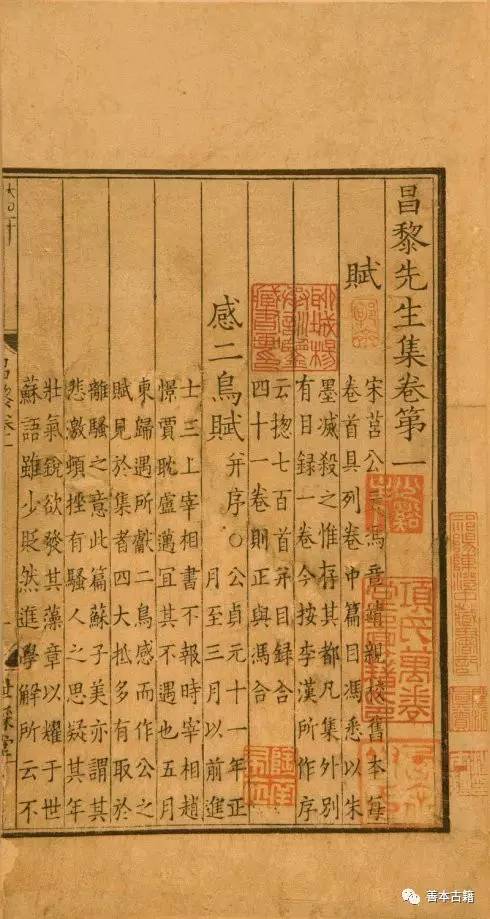 昌黎先生集卷第一
賦
宋莒公云馮章靖親校舊本每
卷首具列卷中篇目馮悉以朱
墨滅殺之惟存其都凡集外别
有目録一卷今按李漢所作序
云揔七百首并目録合
四十一卷則正與馮合
感二鳥賦
并序〇公貞元十一年正
月至三月以前進
士三上宰相書不報時宰相趙
憬賈耽盧邁宜其不遇也五月
東歸遇所獻二鳥感而作公之
賦見於集者四大抵多有取於
離騷之意此篇蘇子美亦謂其
悲激頓挫有騷人之思疑其年
壯氣銳欲發其藻章以耀于世
蘇語雖少貶然進學解所云不
世綵堂
聊城楊
承訓鑒
藏書畫
項氏萬卷
善本古籍